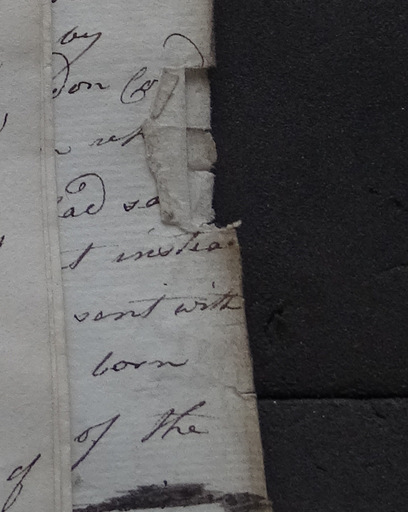 by
don Co
rep
had sa
t instea
sent with
born
of the
of